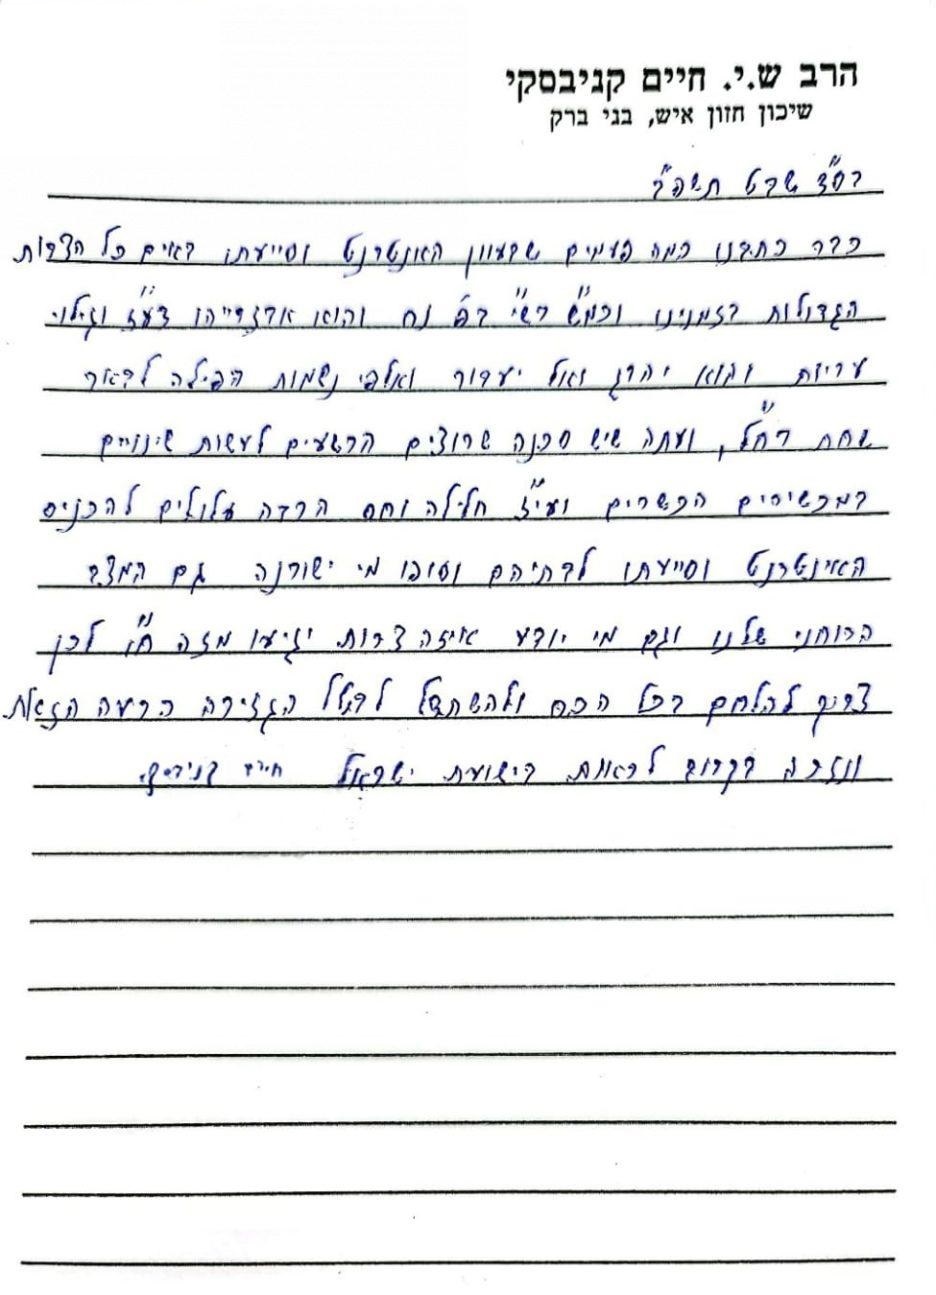 הרב ש.י. חיים קניבסקי
שיכון חזון איש, בני ברק
בס"ד שבט תשפ"ב
כבר כתבנו כמה פעמים שבעוון האונטרנט וסייעתו באים כל הצרות
הגדולות בזמנינו וכמ"ש רש"י בפ' נח והוא אביזרייהו דע"ז וגילוי
עריות והוא יהרג ואל יעבור ואלפי נשמות הפילה לבאר
שחת רח"ל, ועתה שיש סכנה שרוצים הרשעים לעשות שינויים
במכשירים הכשרים ועי"ז חלילה וחס הרבה עלולים להכניס
האינטרנט וסייעתו לבתיהם וסופו מי ישורנה גם המצב
הרוחני שלנו וגם מי יודע איזה צרות יגיעו מזה ח"ו לכן
צריך להלחם בכל הכח ולהשתדל לבטל הגזירה הרעה הזאת
ונזכה בקרוב לראות בישועת ישראל חיים קניבסקי